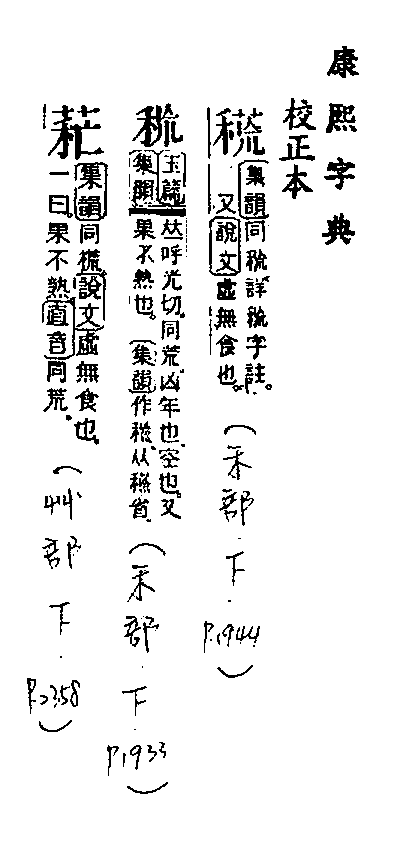 康熙字典
校正本
集韻同詳字註。
又說文虛無食也。
(禾部.下.P.1944)
玉篇𠀤呼光切。同荒。凶年也。空也。又
集韻果不熟也。集韻作从省。
(禾部.下.P.1933)
集韻同說文虛無食也。
一曰果不熟。直音同荒。
(艸部下.P.2358)